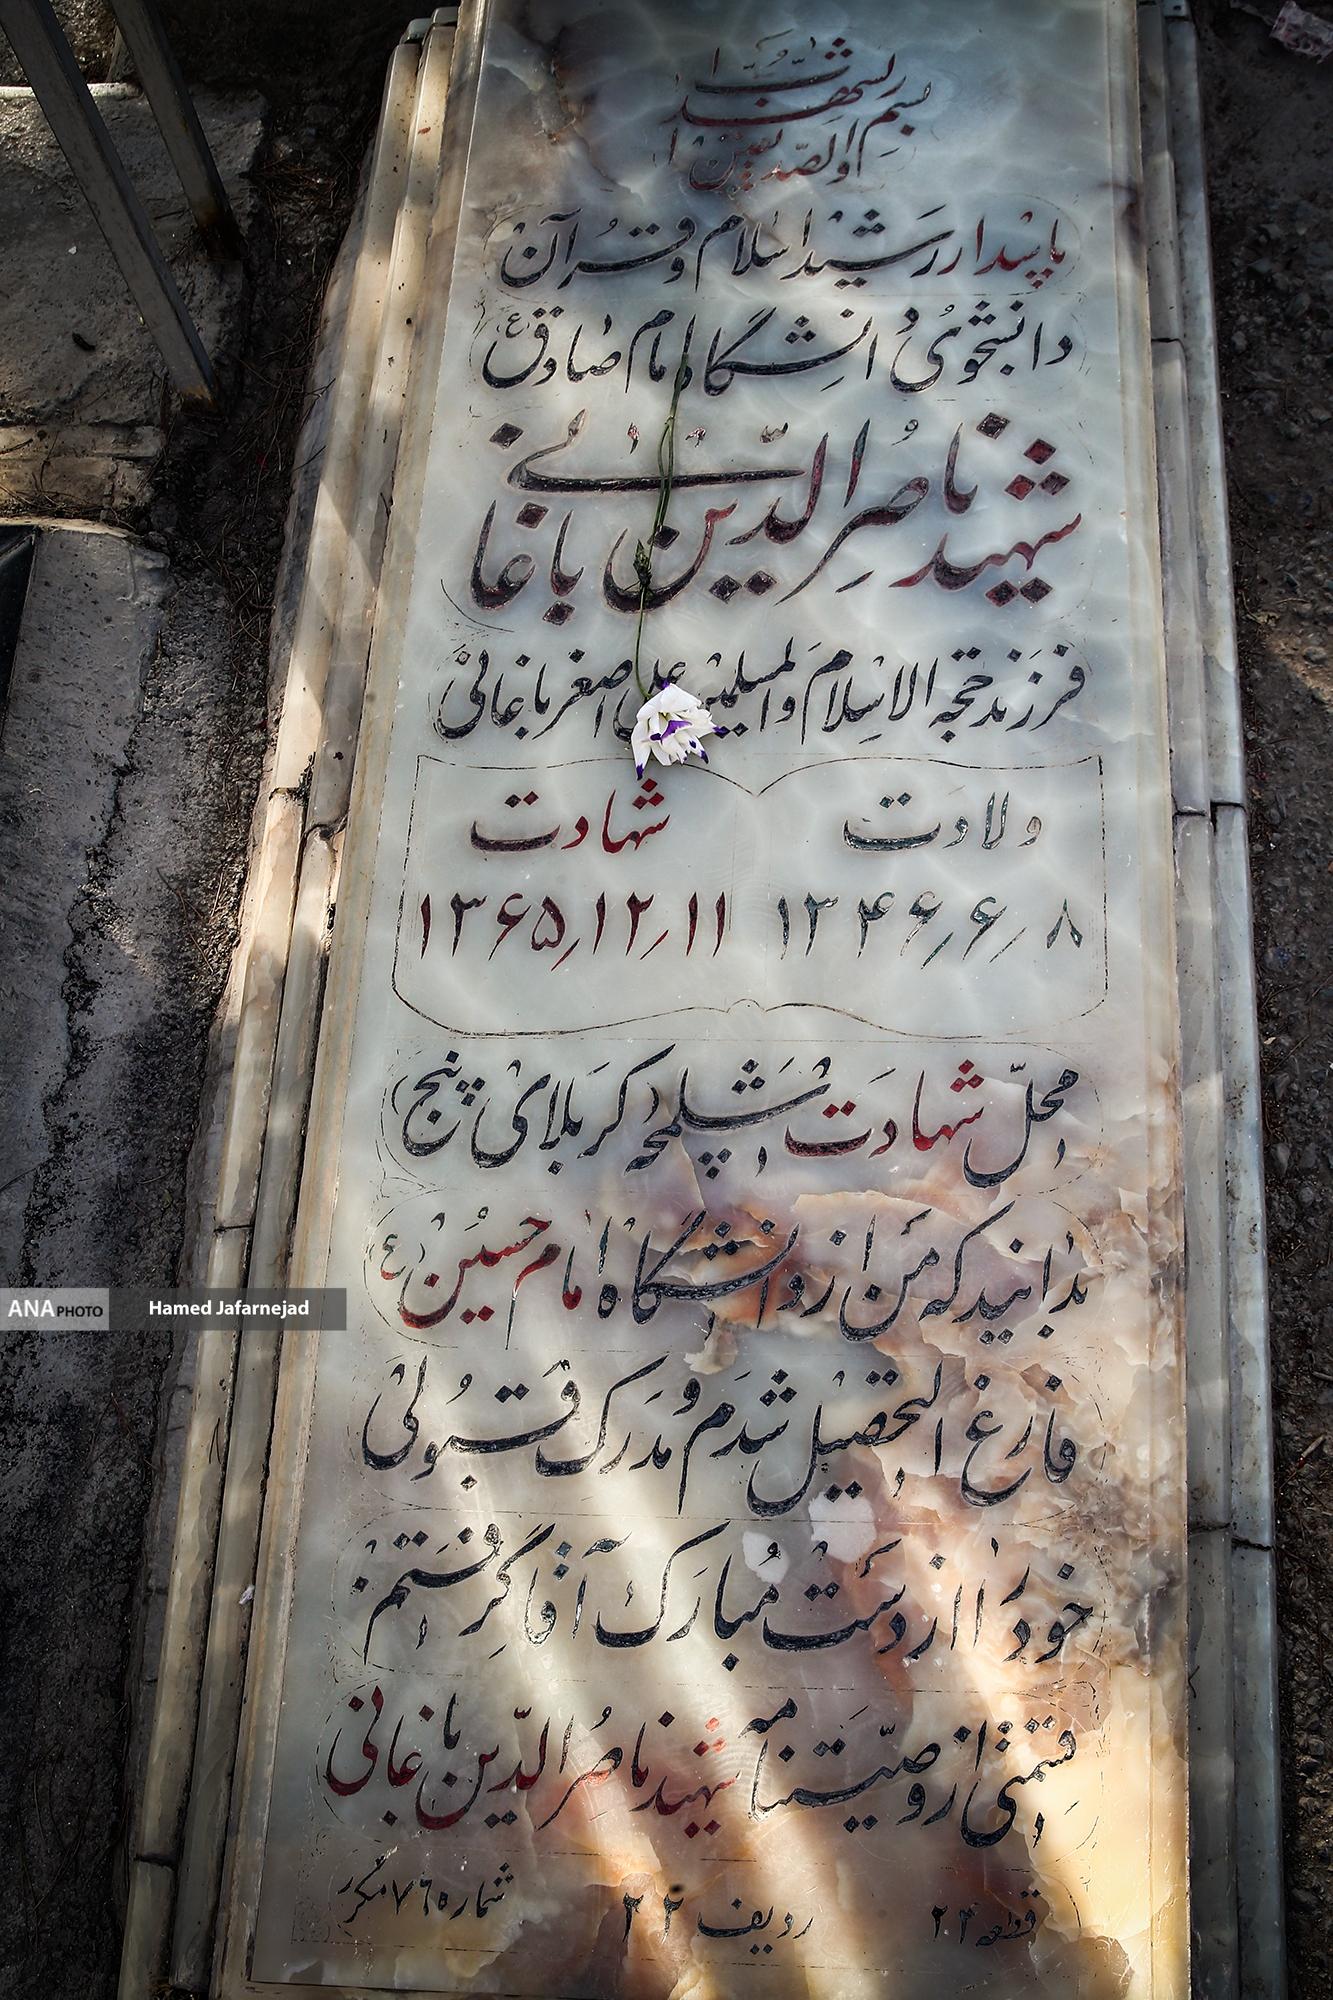 بسم رب الشهداء
والصدیقین
پاسدار رشید اسلام و قرآن
دانشجوی دانشگاه امام صادق (ع)
شهید ناصرالدین باغانی
فرزند حجة الاسلام والمسلمین علی اصغر باغانی
ولادت
شهادت
۸/۶/۱۳۴۶
۱۱/۱۲/۱۳۶۵
محل شهادت شلمچه کربلای پنج
بدانید که من از دانشگاه امام حسین (ع)
فارغ التحصیل شدم و مدرک قبولی
خود را از دست مبارک آقا گرفتم
قسمتی از وصیتنامه شهید ناصرالدین باغانی
قطعه ۲۴ ردیف ۲۲ شماره ۷۶ مکرر
ANA PHOTO Hamed Jafarnejad